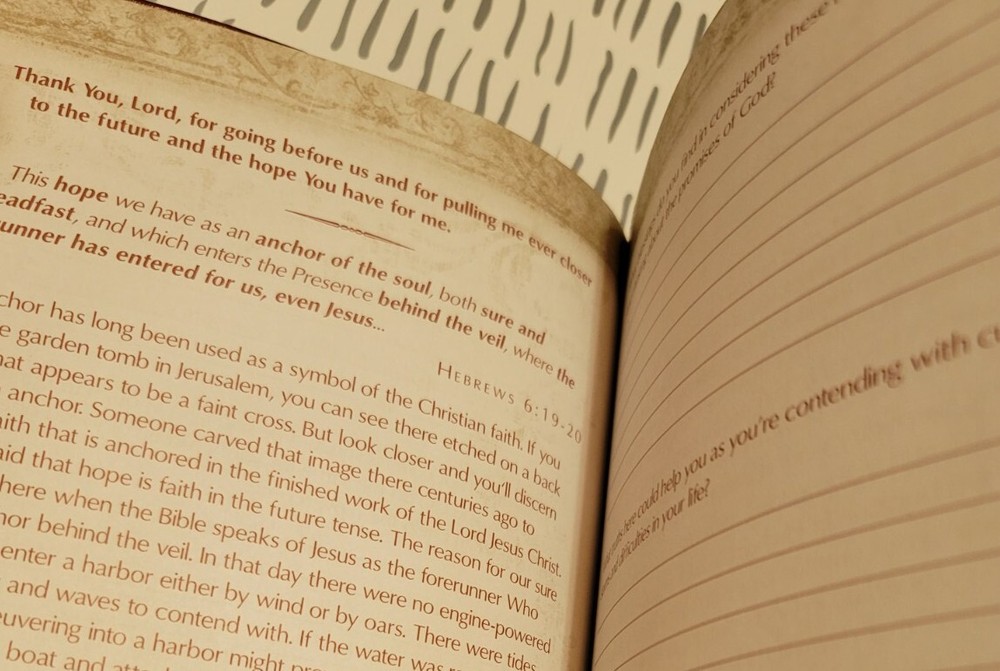 Thank You, Lord, for going before us and for pulling me ever closer
to the future and the hope You have for me.
This hope we have as an anchor of the soul, both sure and
eadfast, and which enters the Presence behind the veil, where the
unner has entered for us, even Jesus...
HEBREWS 6:19-20
chor has long been used as a symbol of the Christian faith. If you
e garden tomb in Jerusalem, you can see there etched on a back
hat appears to be a faint cross. But look closer and you'll discern
anchor. Someone carved that image there centuries ago to
aith that is anchored in the finished work of the Lord Jesus Christ.
aid that hope is faith in the future tense. The reason for our sure
here when the Bible speaks of Jesus as the forerunner Who
hor behind the veil. In that day there were no engine-powered
enter a harbor either by wind or by oars. There were tides
and waves to contend with. If the water was
euvering into a harbor might
boat and
do you find in considering these
about the promises of God?
could help you as you're contending with
and difficulties in your life?